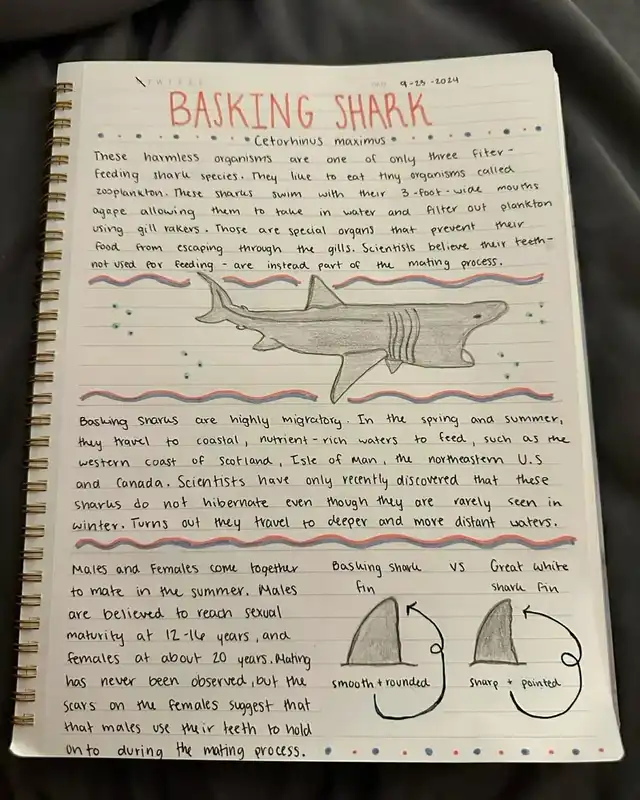 9-23-2024
BASKING SHARK
Cetorhinus maximus
These harmless organisms are one of only three fiter-
feeding shark species. They like to eat tiny organisms called
zooplankton. These sharks swim with their 3-foot-wide mouths
agape allowing them to take in water and filter out plankton
using gill rakers. Those are special organs that prevent their
food from escaping through the gills. Scientists believe their teeth-
not used for feeding - are instead part of the mating process.
Basking sharks are highly migratory. In the spring and summer,
they travel to coastal, nutrient-rich waters to feed, such as the
western coast of Scotland, Isle of Man, the northeastern U.S
and Canada. Scientists have only recently discovered that these
sharks do not hibernate even though they are rarely seen in
winter. Turns out they travel to deeper and more distant waters.
Males and females come together
to mate in the summer. Males
are believed to reach sexual
maturity at 12-16 years, and
females at about 20 years. Mating
has never been observed, but the
scars on the females suggest that
that males use their teeth to hold
on to during the mating process.
Basking shark vs Great white
fin shark fin
smooth + rounded sharp + pointed